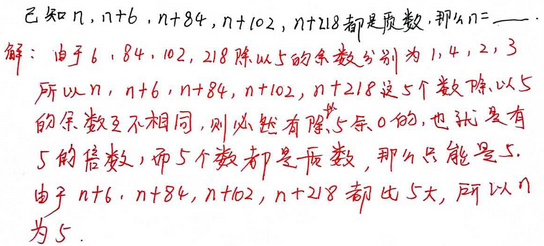 已知n, n+6, n+84, n+102, n+218都是质数,那么n=____.
解:由于6, 84, 102, 218除以5的余数分别为1, 4, 2, 3
所以n, n+6, n+84, n+102, n+218这5个数除以5
的余数互不相同,则必然有除以5余0的,也就是有
5的倍数,而5个数都是质数,那么只能是5.
由于n+6, n+84, n+102, n+218都比5大,所以n
为5.